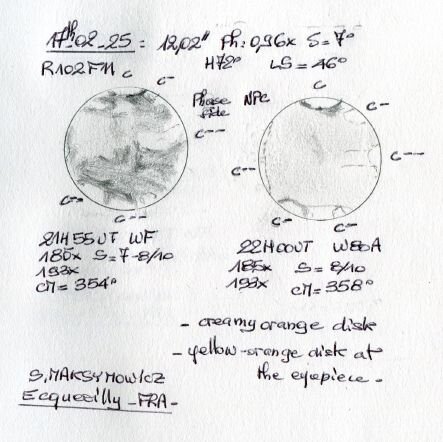 17th-02-25 = 12,02" Ph: 0,96x S = 7°
R102F11 H72° LS = 46°
C C-
C C-
Phase side NPC
C--
C-- C--
C-- C--
C- C--
21H55UT WF
185x S = 7-8/10
193x
CM = 354°
22H00UT W80A
185x S = 8/10
193x CM = 358°
- creamy orange disk
- yellow-orange disk at
the eyepiece.
S. MAKSYMOWICZ
Ecquevilly -FRA-